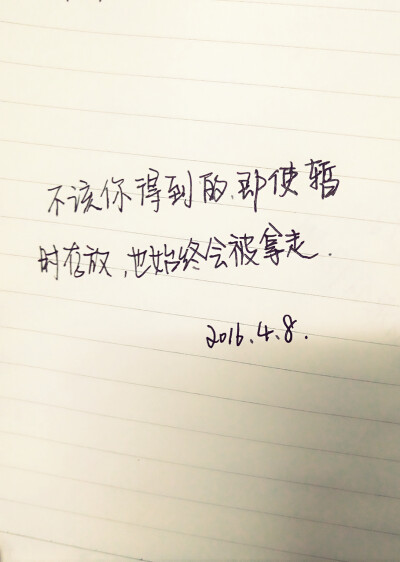 不该你得到的,即使暂
时存放,也始终会被拿走.
2016.4.8.